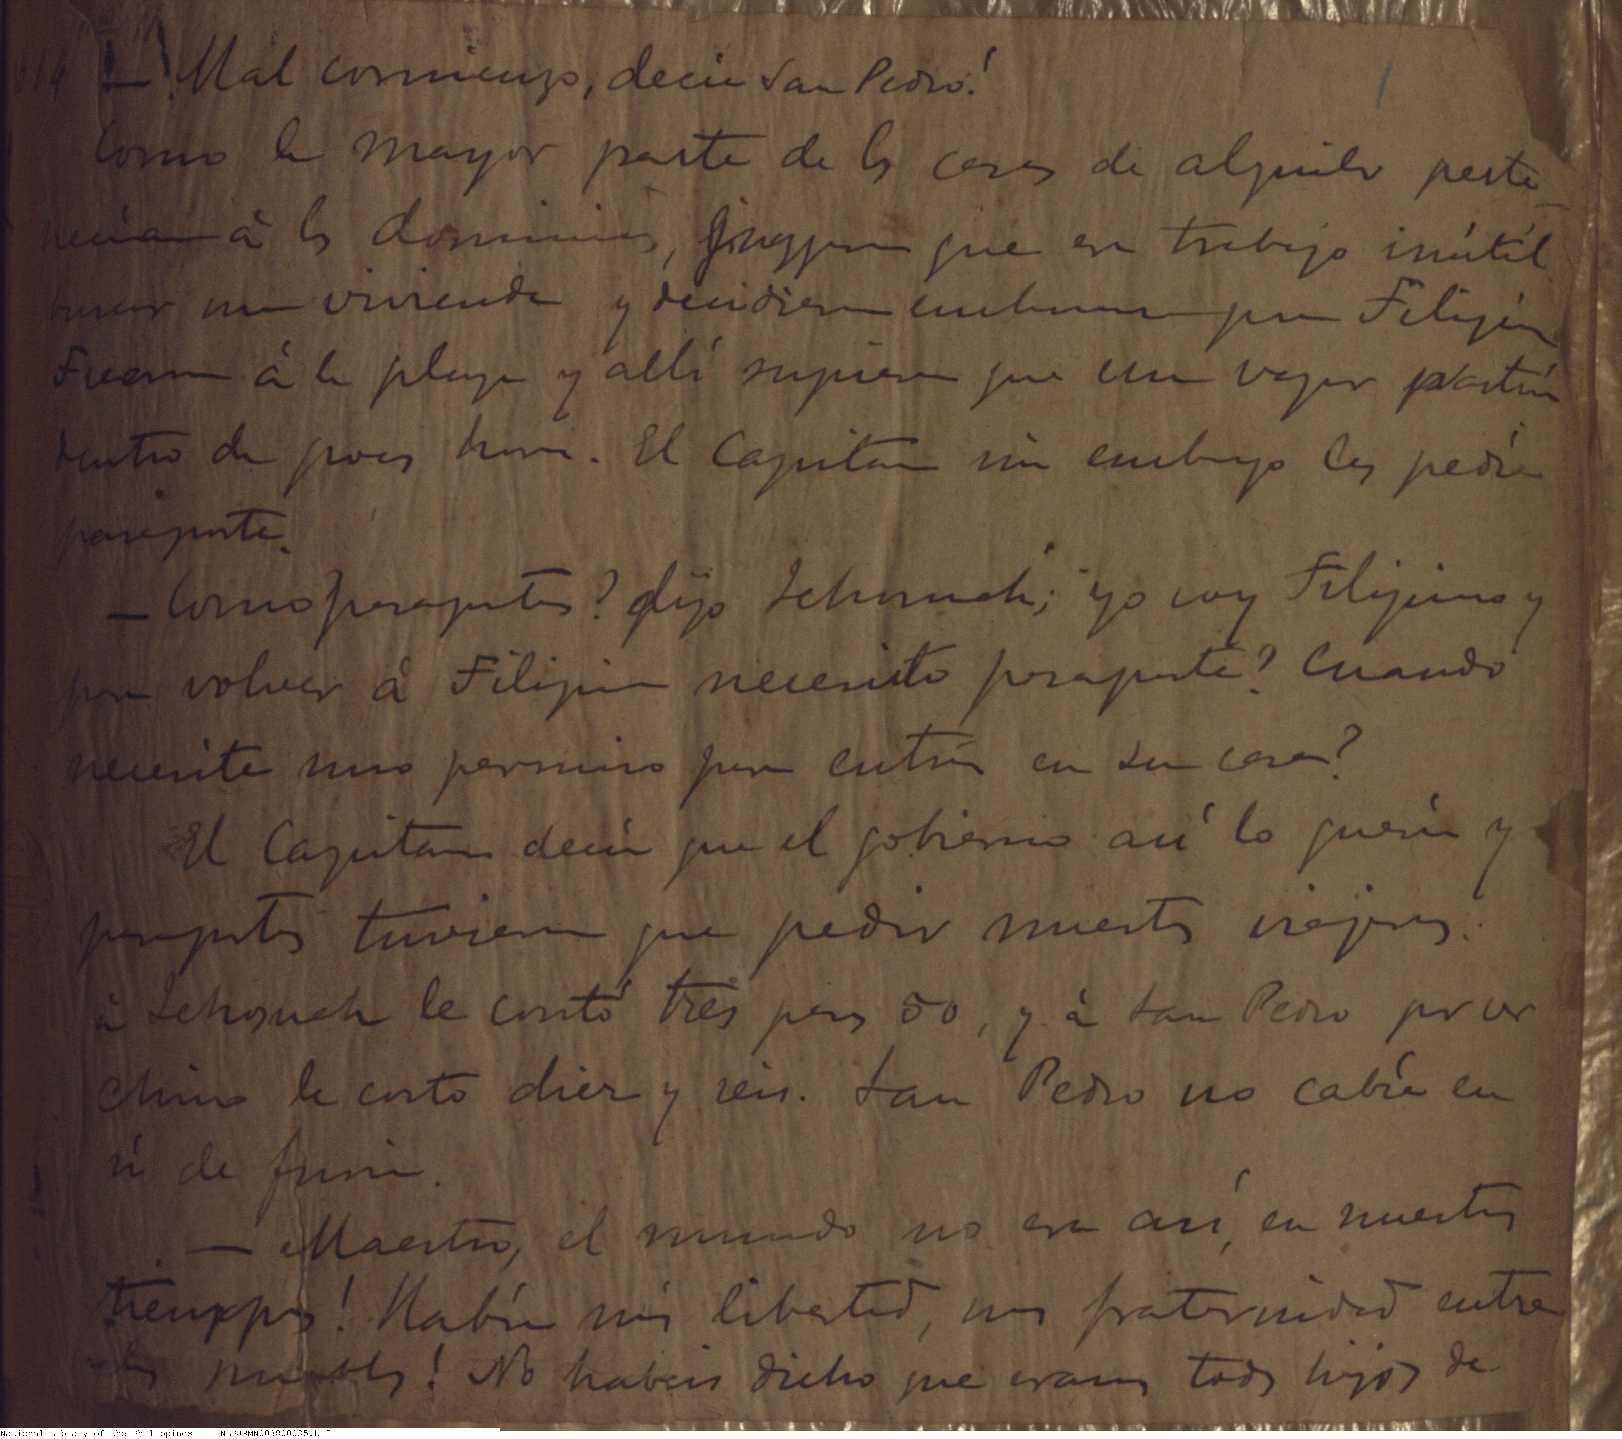 — ¡Mal comienzo, decía San Pedro!
Como la mayor parte de las casas de alquiler perte-
necían á los dominicos, juzgaron que era trabajo inútil
buscar una vivienda y decidieron embarcarse para Filipinas
Fueron á la playa y allí supieron que un vapor partía
dentro de pocas horas. El Capitan sin embargo les pedía
pasaporte.
— Como pasaportes? dijo Jehovah; yo soy Filipino y
para volver á Filipinas necesito pasaporte? Cuando
necesita uno permiso para entrar en su casa?
El Capitan decía que el gobierno así lo quería y
pasaportes tuvieron que pedir nuestros viajeros.
á Jehovah le costó tres pesos 50, y á San Pedro por ser
chino le costó diez y seis. San Pedro no cabía en
sí de furia.
— Maestro, el mundo no era así, en nuestros
tiempos! Había más libertad, mas fraternidad entre
los pueblos! No habeis dicho que eramos todos hijos de
National Library of the Philippines